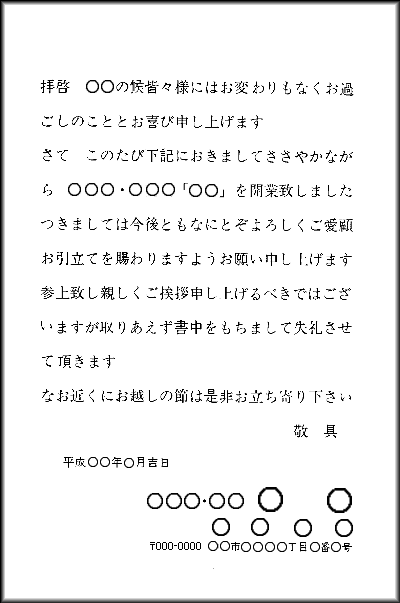 拝啓　〇〇の候皆々様にはお変わりもなくお過
ごしのこととお喜び申し上げます
さて　このたび下記におきましてささやかなが
ら　〇〇〇・〇〇〇「〇〇」を開業致しました
つきましては今後ともなにとぞよろしくご愛顧
お引立てを賜わりますようお願い申し上げます
参上致し親しくご挨拶申し上げるべきではござ
いますが取りあえず書中をもちまして失礼させ
て頂きます
なお近くにお越しの節は是非お立ち寄り下さい
敬　具
平成〇〇年〇月吉日
〇〇〇・〇〇　〇　〇
〇　〇　〇　〇
〒000-0000　〇〇市〇〇〇〇丁目〇番〇号